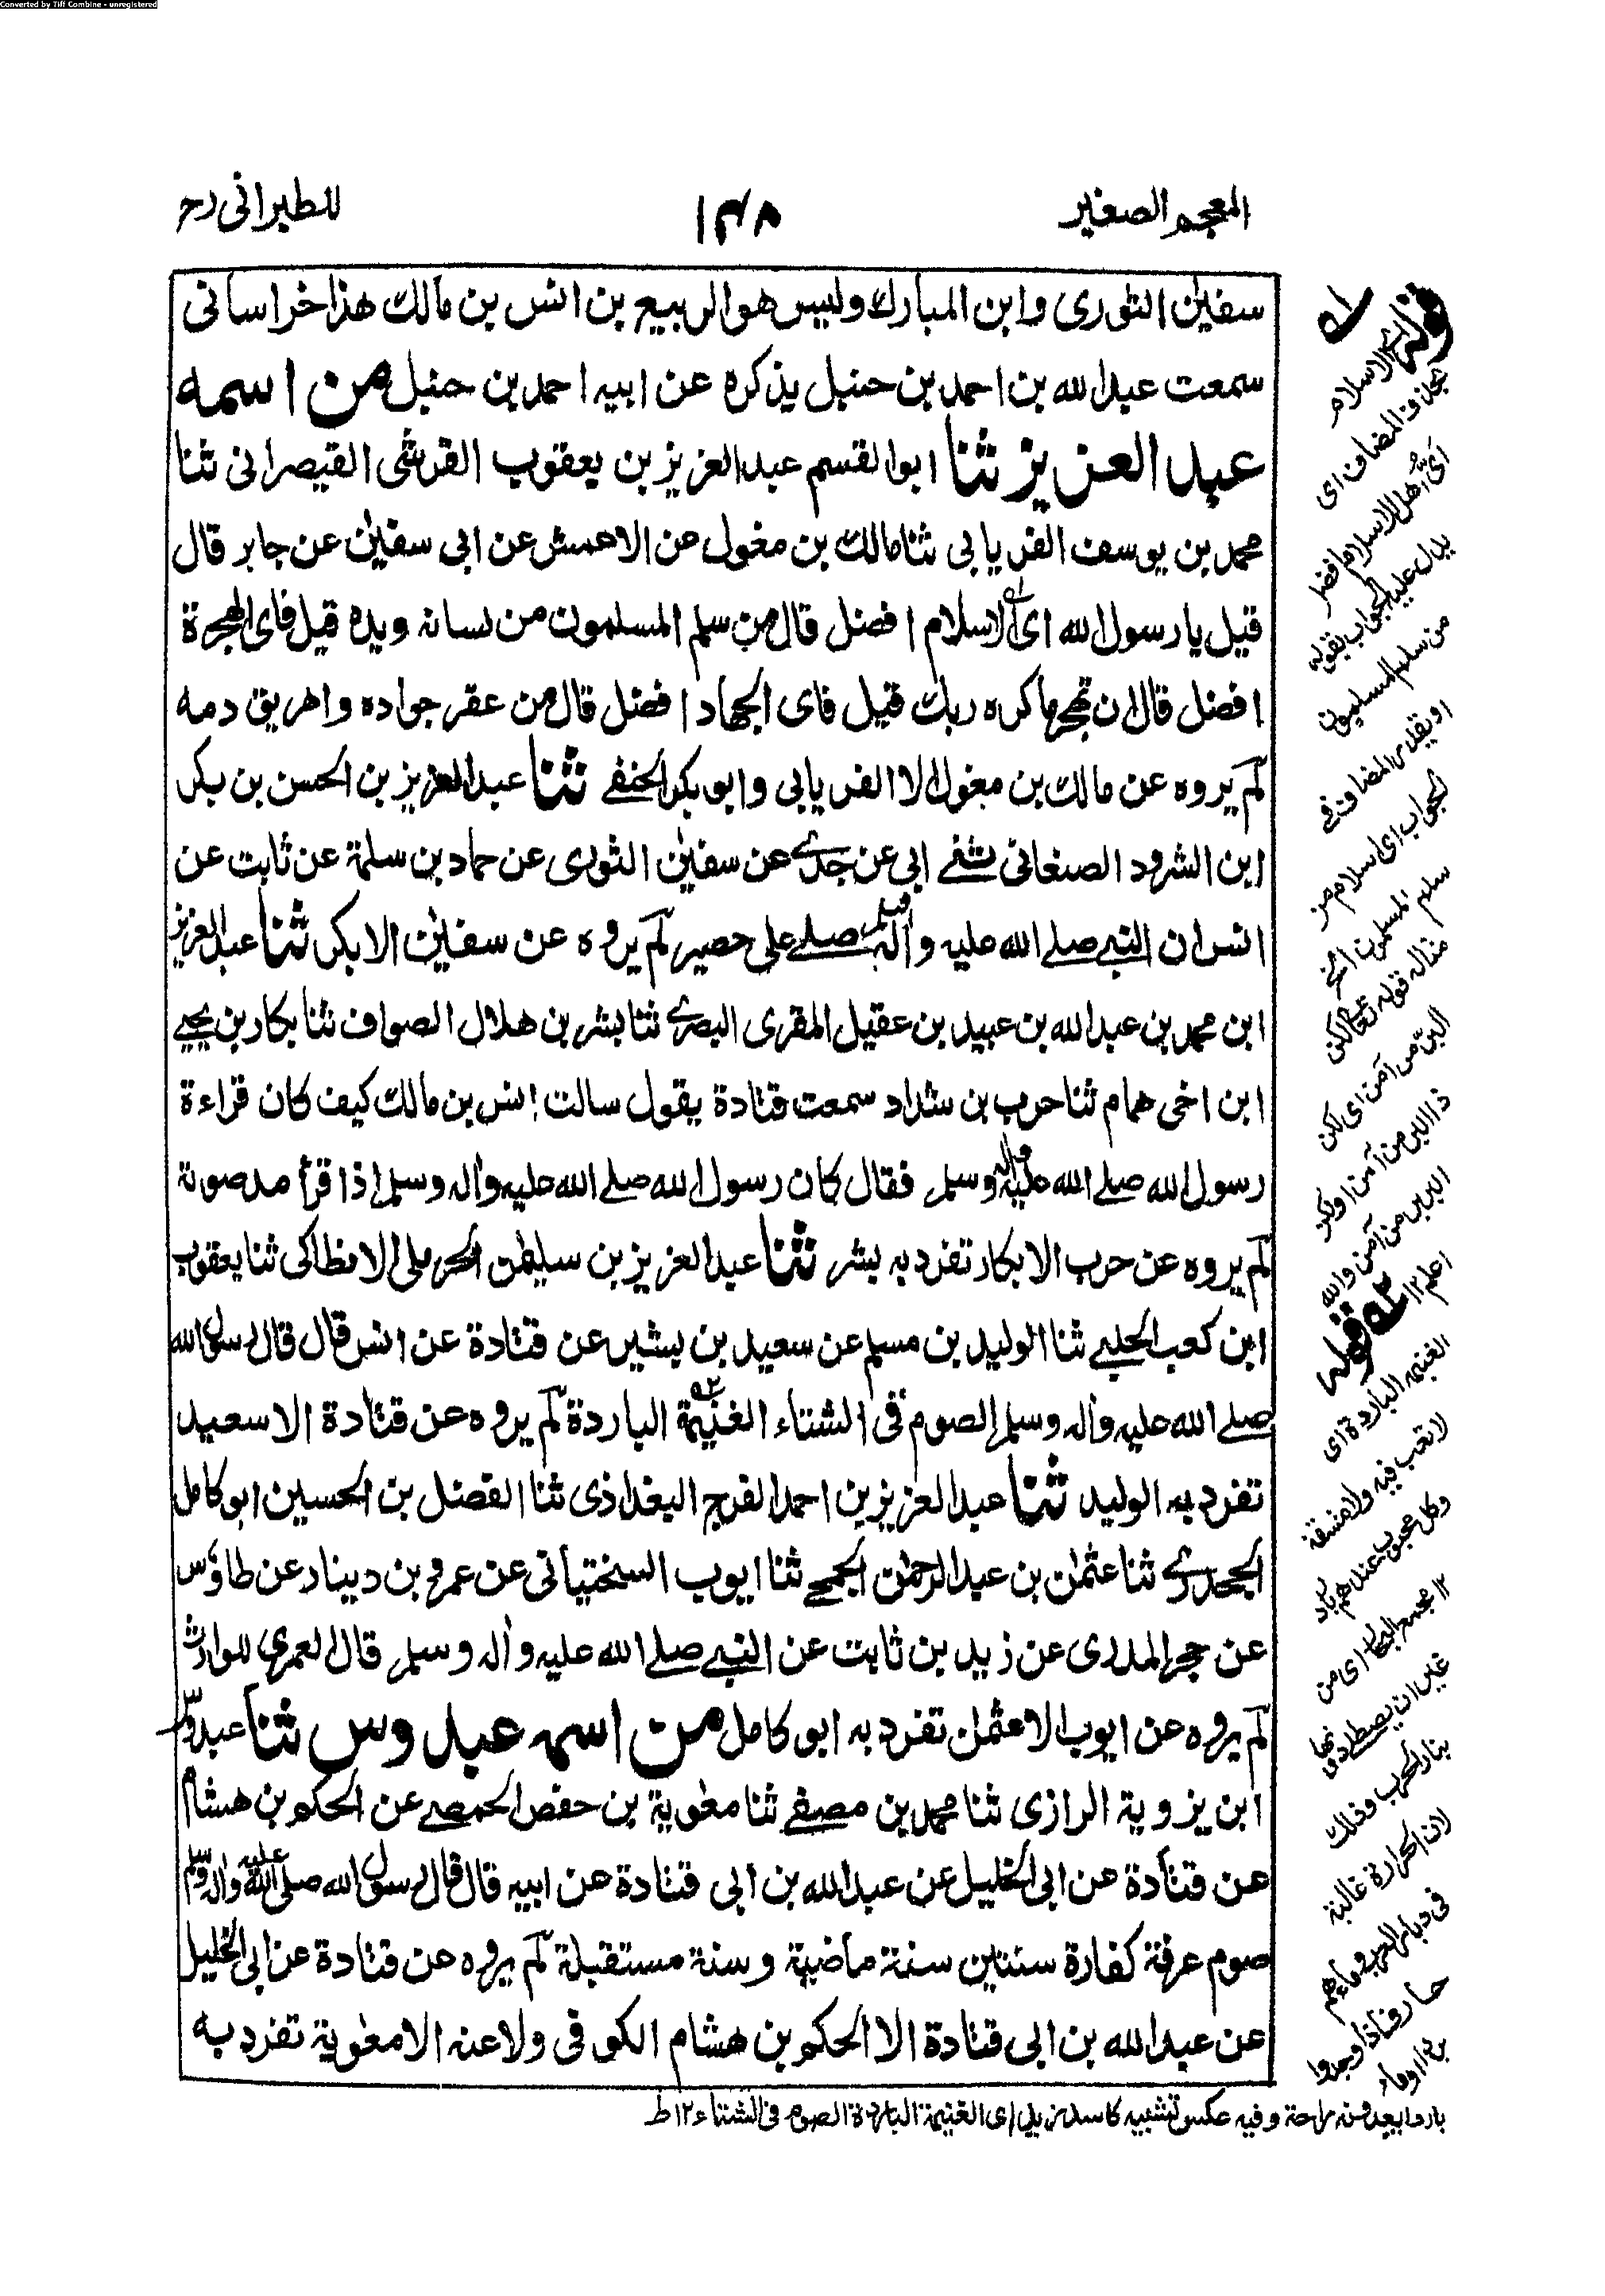 Converted by Tiff Combine - unregistered
المعجم الصغير
١٤٨
للطبرانى رح
سفيٰن الثورى وابن المبارك وليس هو الربيع بن انس بن مالك هذا خراسانى
سمعت عبدالله بن احمد بن حنبل يذكره عن ابيه احمد بن حنبل من اسمه
عبد العزيز ثنا ابوالقسم عبدالعزيز بن يعقوب القرشى القيصرانى ثنا
محمد بن يوسف الفريابى ثنا مالك بن مغول عن الاعمش عن ابى سفيٰن عن جابر قال
قيل يا رسول الله اى الاسلام افضل قال من سلم المسلمون من لسانه ويده قيل فاى الهجرة
افضل قال ان تهجر ما كره ربك قيل فاى الجهاد افضل قال من عقر جواده واهريق دمه
لم يروه عن مالك بن مغول الا الفريابى وابو بكر الحنفے ثنا عبدالعزيز بن الحسن بن بكر
ابن الشرود الصنعانى ثنے ابى عن جدے عن سفيٰن الثورى عن حماد بن سلمة عن ثابت عن
انس ان النبے صلے الله عليه واٰله وسلم صلے على حصير لم يروه عن سفيٰن الا بكر ثنا عبدالعزيز
ابن محمد بن عبدالله بن عبيد بن عقيل المقرى البصرے ثنا بشر بن هلال الصواف ثنا بكار بن يحيے
ابن اخى همام ثنا حرب بن شداد سمعت قتادة يقول سالت انس بن مالك كيف كان قراءة
رسول الله صلے الله عليه واٰله وسلم فقال كان رسول الله صلے الله عليه واٰله وسلم اذا قرأ مد صوته
لم يروه عن حرب الا بكار تفرد به بشر ثنا عبدالعزيز بن سليمٰن الحرملى الانطاكى ثنا يعقوب
ابن كعب الحلبے ثنا الوليد بن مسلم عن سعيد بن بشير عن قتادة عن انس قال قال رسول الله
صلے الله عليه واٰله وسلم الصوم فى الشتاء الغنيمة الباردة لم يروه عن قتادة الا سعيد
تفرد به الوليد ثنا عبدالعزيز بن احمد الفرج البغداذى ثنا الفضل بن الحسين ابو كامل
الجحدرے ثنا عثمٰن بن عبدالرحمٰن الجمحے ثنا ايوب السختيانى عن عمرو بن دينار عن طاؤس
عن حجر المدرى عن زيد بن ثابت عن النبے صلے الله عليه واٰله وسلم قال العمرى للوارث
لم يروه عن ايوب الا عثمٰن تفرد به ابو كامل من اسمه عبدوس ثنا عبدوس
ابن يزوية الرازى ثنا محمد بن مصفے ثنا معٰوية بن حفص الحمصے عن الحكم بن هشام
عن قتادة عن ابى الخليل عن عبدالله بن ابى قتادة عن ابيه قال قال رسول الله صلى الله عليه واٰله وسلم
صوم عرفة كفارة سنتين سنة ماضية وسنة مستقبلة لم يروه عن قتادة عن ابى الخليل
عن عبدالله بن ابى قتادة الا الحكم بن هشام الكوفى ولا عنه الا معٰوية تفرد به
قوله اے الاسلام
بحذف المضاف اى
اى اهل الاسلام افضل
يدل عليه الجواب بقوله
من سلم المسلمون
او يقدر المضاف فے
الجواب اى اسلام من
سلم المسلمون
مثاله قوله تعالى لكن
البر من آمن اى لكن
ذا البر من آمن او لكن
البر بر من آمن والله
اعلم ١٢ ٢ه قوله
الغنيمة الباردة اى
لا تعب فيه ولا مشقة
وكل محبوب عندهم بارد
١٢ مجمع البحار اى من
غير ان يصطلى فيها
بنار الحرب وذلك
لان الحرارة غالبة
فى ديار العرب وماءهم
حار فاذا وجدوا
بردا او ماء
باردا يعدونه راحة وفيه عكس تشبيه كاسد زيد اى الغنيمة الباردة الصوم فى الشتاء ١٢ ط